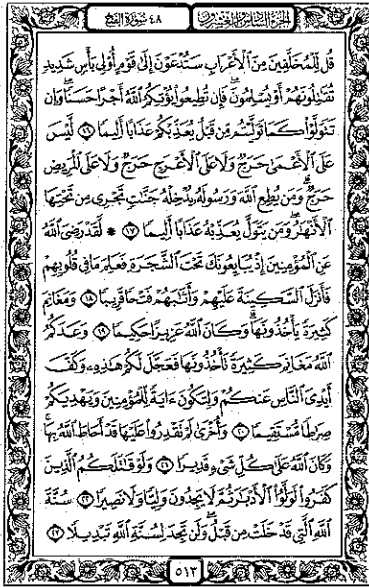 الجزء السادس والعشرون ٤٨ سورة الفتح
قُل لِّلْمُخَلَّفِينَ مِنَ ٱلْأَعْرَابِ سَتُدْعَوْنَ إِلَىٰ قَوْمٍ أُو۟لِى بَأْسٍ شَدِيدٍ
تُقَٰتِلُونَهُمْ أَوْ يُسْلِمُونَ ۖ فَإِن تُطِيعُوا۟ يُؤْتِكُمُ ٱللَّهُ أَجْرًا حَسَنًا ۖ وَإِن
تَتَوَلَّوْا۟ كَمَا تَوَلَّيْتُم مِّن قَبْلُ يُعَذِّبْكُمْ عَذَابًا أَلِيمًا ۝١٦ لَّيْسَ
عَلَى ٱلْأَعْمَىٰ حَرَجٌ وَلَا عَلَى ٱلْأَعْرَجِ حَرَجٌ وَلَا عَلَى ٱلْمَرِيضِ
حَرَجٌ ۗ وَمَن يُطِعِ ٱللَّهَ وَرَسُولَهُۥ يُدْخِلْهُ جَنَّٰتٍ تَجْرِى مِن تَحْتِهَا
ٱلْأَنْهَٰرُ ۖ وَمَن يَتَوَلَّ يُعَذِّبْهُ عَذَابًا أَلِيمًا ۝١٧ ۞ لَّقَدْ رَضِىَ ٱللَّهُ
عَنِ ٱلْمُؤْمِنِينَ إِذْ يُبَايِعُونَكَ تَحْتَ ٱلشَّجَرَةِ فَعَلِمَ مَا فِى قُلُوبِهِمْ
فَأَنزَلَ ٱلسَّكِينَةَ عَلَيْهِمْ وَأَثَٰبَهُمْ فَتْحًا قَرِيبًا ۝١٨ وَمَغَانِمَ
كَثِيرَةً يَأْخُذُونَهَا ۗ وَكَانَ ٱللَّهُ عَزِيزًا حَكِيمًا ۝١٩ وَعَدَكُمُ
ٱللَّهُ مَغَانِمَ كَثِيرَةً تَأْخُذُونَهَا فَعَجَّلَ لَكُمْ هَٰذِهِۦ وَكَفَّ
أَيْدِىَ ٱلنَّاسِ عَنكُمْ وَلِتَكُونَ ءَايَةً لِّلْمُؤْمِنِينَ وَيَهْدِيَكُمْ
صِرَٰطًا مُّسْتَقِيمًا ۝٢٠ وَأُخْرَىٰ لَمْ تَقْدِرُوا۟ عَلَيْهَا قَدْ أَحَاطَ ٱللَّهُ بِهَا ۚ
وَكَانَ ٱللَّهُ عَلَىٰ كُلِّ شَىْءٍ قَدِيرًا ۝٢١ وَلَوْ قَٰتَلَكُمُ ٱلَّذِينَ
كَفَرُوا۟ لَوَلَّوُا۟ ٱلْأَدْبَٰرَ ثُمَّ لَا يَجِدُونَ وَلِيًّا وَلَا نَصِيرًا ۝٢٢ سُنَّةَ
ٱللَّهِ ٱلَّتِى قَدْ خَلَتْ مِن قَبْلُ ۖ وَلَن تَجِدَ لِسُنَّةِ ٱللَّهِ تَبْدِيلًا ۝٢٣
٥١٣